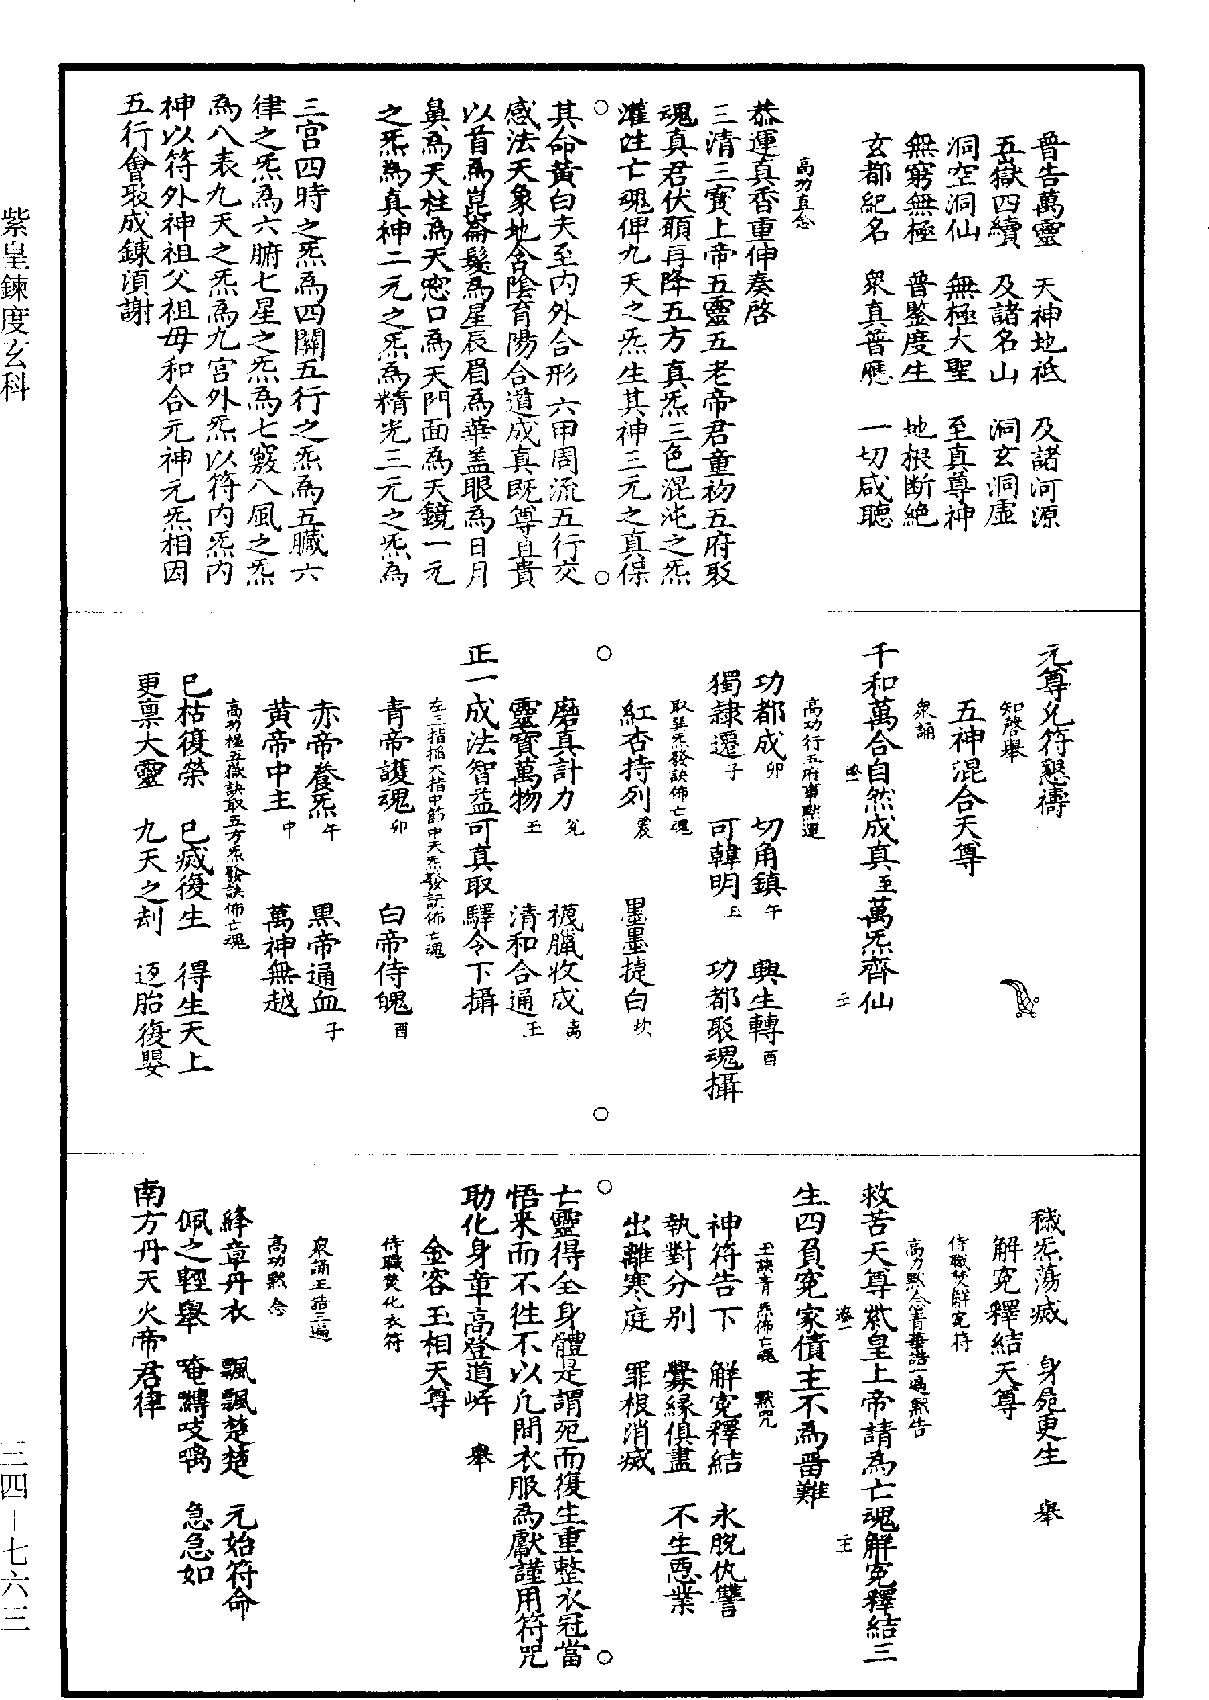 普告萬靈　天神地祇　及諸河源
五嶽四瀆　及諸名山　洞玄洞虛
洞空洞仙　無極大聖　至真尊神
無窮無極　普鑒度生　地根断絶
玄都紀名　衆真普應　一切咸聽
高功直念
恭運真香重伸奏啓
三清三寶上帝五靈五老帝君童初五府聚
魂真君伏願再降五方真炁三色混沌之炁
灌注亡魂俾九天之炁生其神三元之真保
其命黃白夫至内外合形六甲周流五行交
感法天象地含陰育陽合道成真既尊且貴
以首為崑崙髮為星辰眉為華盖眼為日月
鼻為天柱為天窓口為天門面為天鏡一元
之炁為真神二元之炁為精光三元之炁為
三宫四時之炁為四關五行之炁為五臟六
律之炁為六腑七星之炁為七竅八風之炁
為八表九天之炁為九宫外炁以符内炁内
神以符外神祖父祖母和合元神元炁相因
五行會聚成鍊湏謝
元尊允符懇禱
知磬舉
五神混合天尊
衆誦
千和萬合自然成真至萬炁齊仙
高功行五府事默運
功都成卯　切角鎮午　興生轉酉
獨隷遷子　可韓明玉　功都聚魂攝
取巽炁發訣佈亡魂
紅杏持列震　墨墨捷白坎
磨真計力兌　襪臘收成离
靈寶萬物玉　清和合通玉
正一成法智益可真取驛令下攝
左三指掐大指中節中天炁發訣佈亡魂
青帝護魂卯　白帝侍魄酉
赤帝養炁午　黒帝通血子
黃帝中主中　萬神無越
高功握五嶽訣取五方炁發訣佈亡魂
已枯復榮　已滅復生　得生天上
更禀大靈　九天之刦　迈胎復嬰
穢炁蕩滅　身兔更生　舉
解寃釋結天尊
侍職焚解寃符
高功默念青華誥一遍默告
救苦天尊紫皇上帝請為亡魂解寃釋結三
生四負寃家債主不為畱難
玉訣青炁佈亡魂　默咒
神符告下　解寃釋結　永脫仇讐
執對分别　釁縁俱盡　不生惡業
出離寒庭　罪根消滅
亡靈得全身體是謂死而復生重整衣冠當
悟来而不徃不以凢間衣服為獻謹用符咒
助化身章高登道岸　舉
金容玉相天尊
侍職焚化衣符
衆誦玉篇三遍
高功默念
絳章丹衣　飄飄楚楚　元始符命
佩之輕舉　急急如
南方丹天火帝君律
紫皇鍊度玄科
三四－七六三